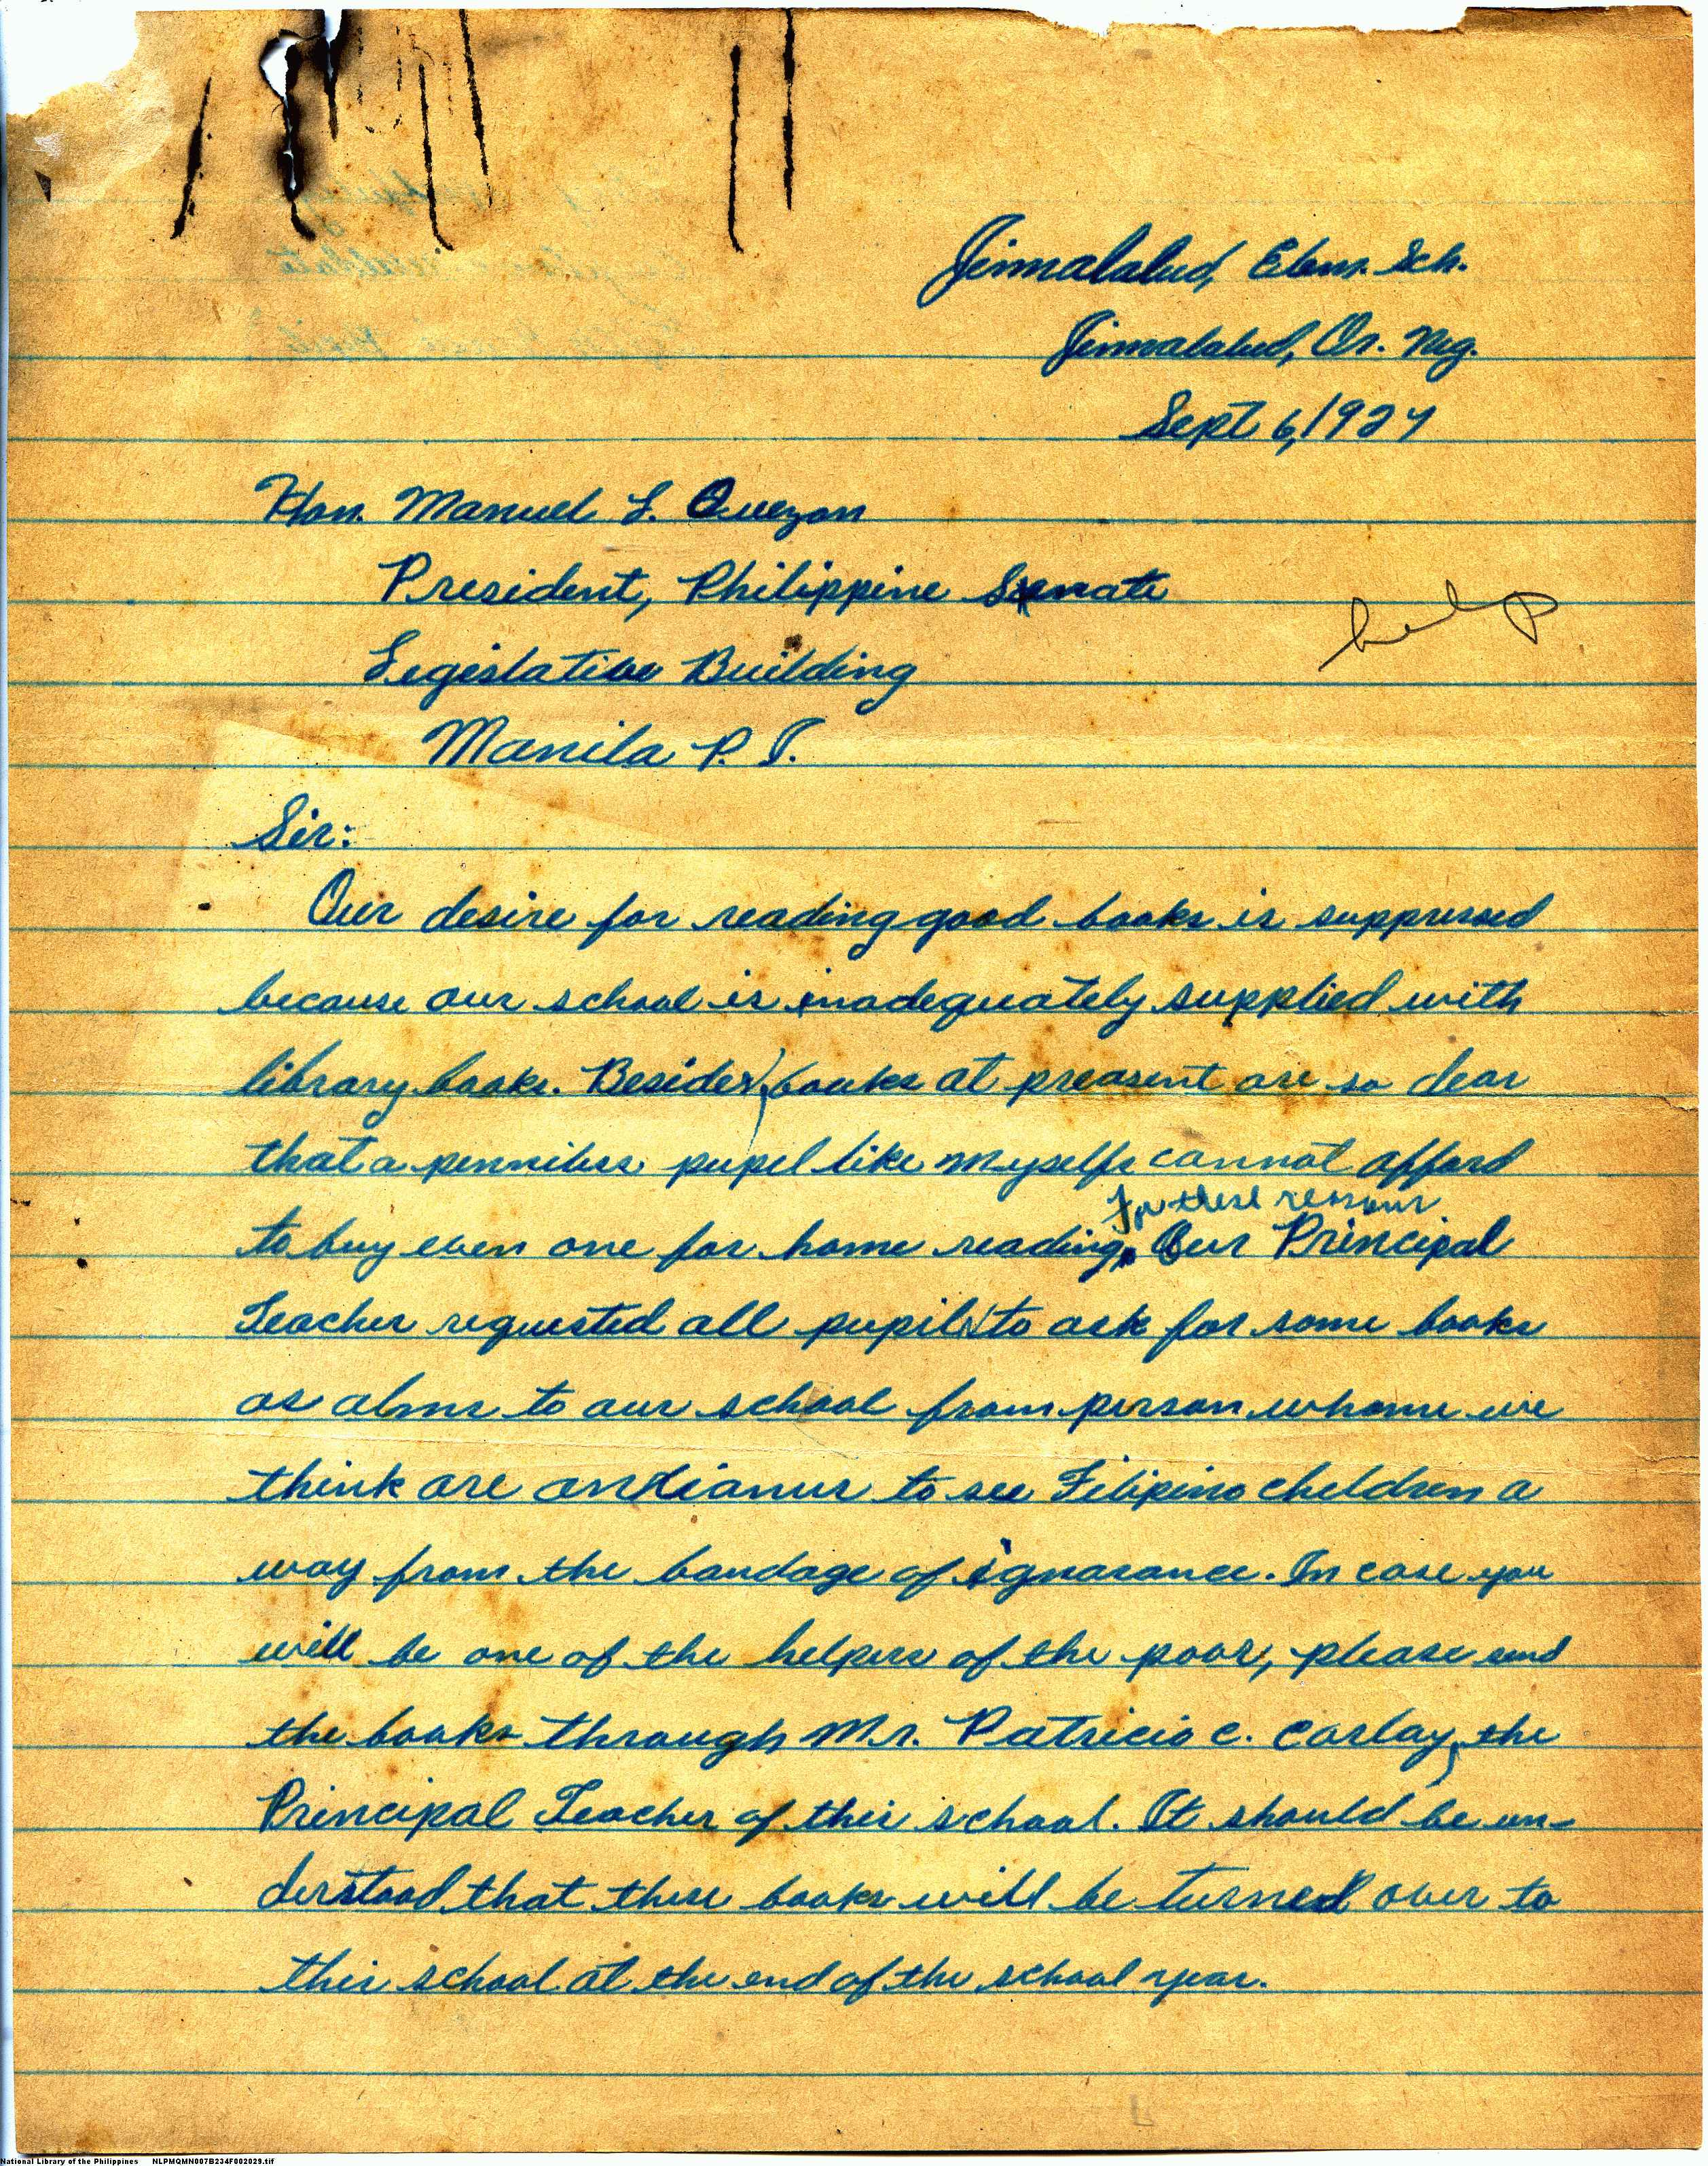 Jimalalud, Elem. Sch.
Jimalalud, Or. Neg.
Sept 6, 1927
Hon. Manuel L. Quezon
President, Philippine Senate
help
Legislative Building
Manila P. I.
Sir:
Our desire for reading good books is suppressed
because our school is inadequately supplied with
library books. Besides, books at preasent are so dear
that a penniless pupel like myselfs cannot afford
For these reasons
to buy even one for home reading. Our Principal
Teacher requested all pupils to ask for some books
as alms to our school from person whome we
think are anxianus to see Filipino children a
way from the bondage of ignorance. In case you
will be one of the helpers of the poor, please send
the books through Mr. Patricio C. Carlay, the
Principal Teacher of this school. It should be un-
derstood that these books will be turned over to
this school at the end of the school year.
National Library of the Philippines NLPMQMN007B234F002029.tif